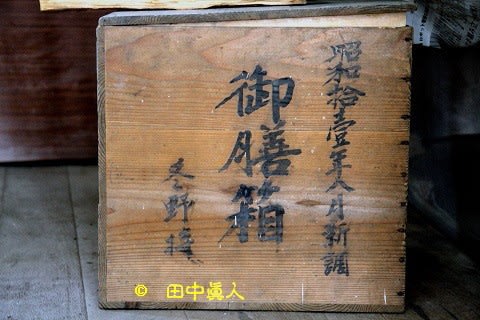 昭和拾壹年八月新調
御膳箱
冬野積
© 田中眞人